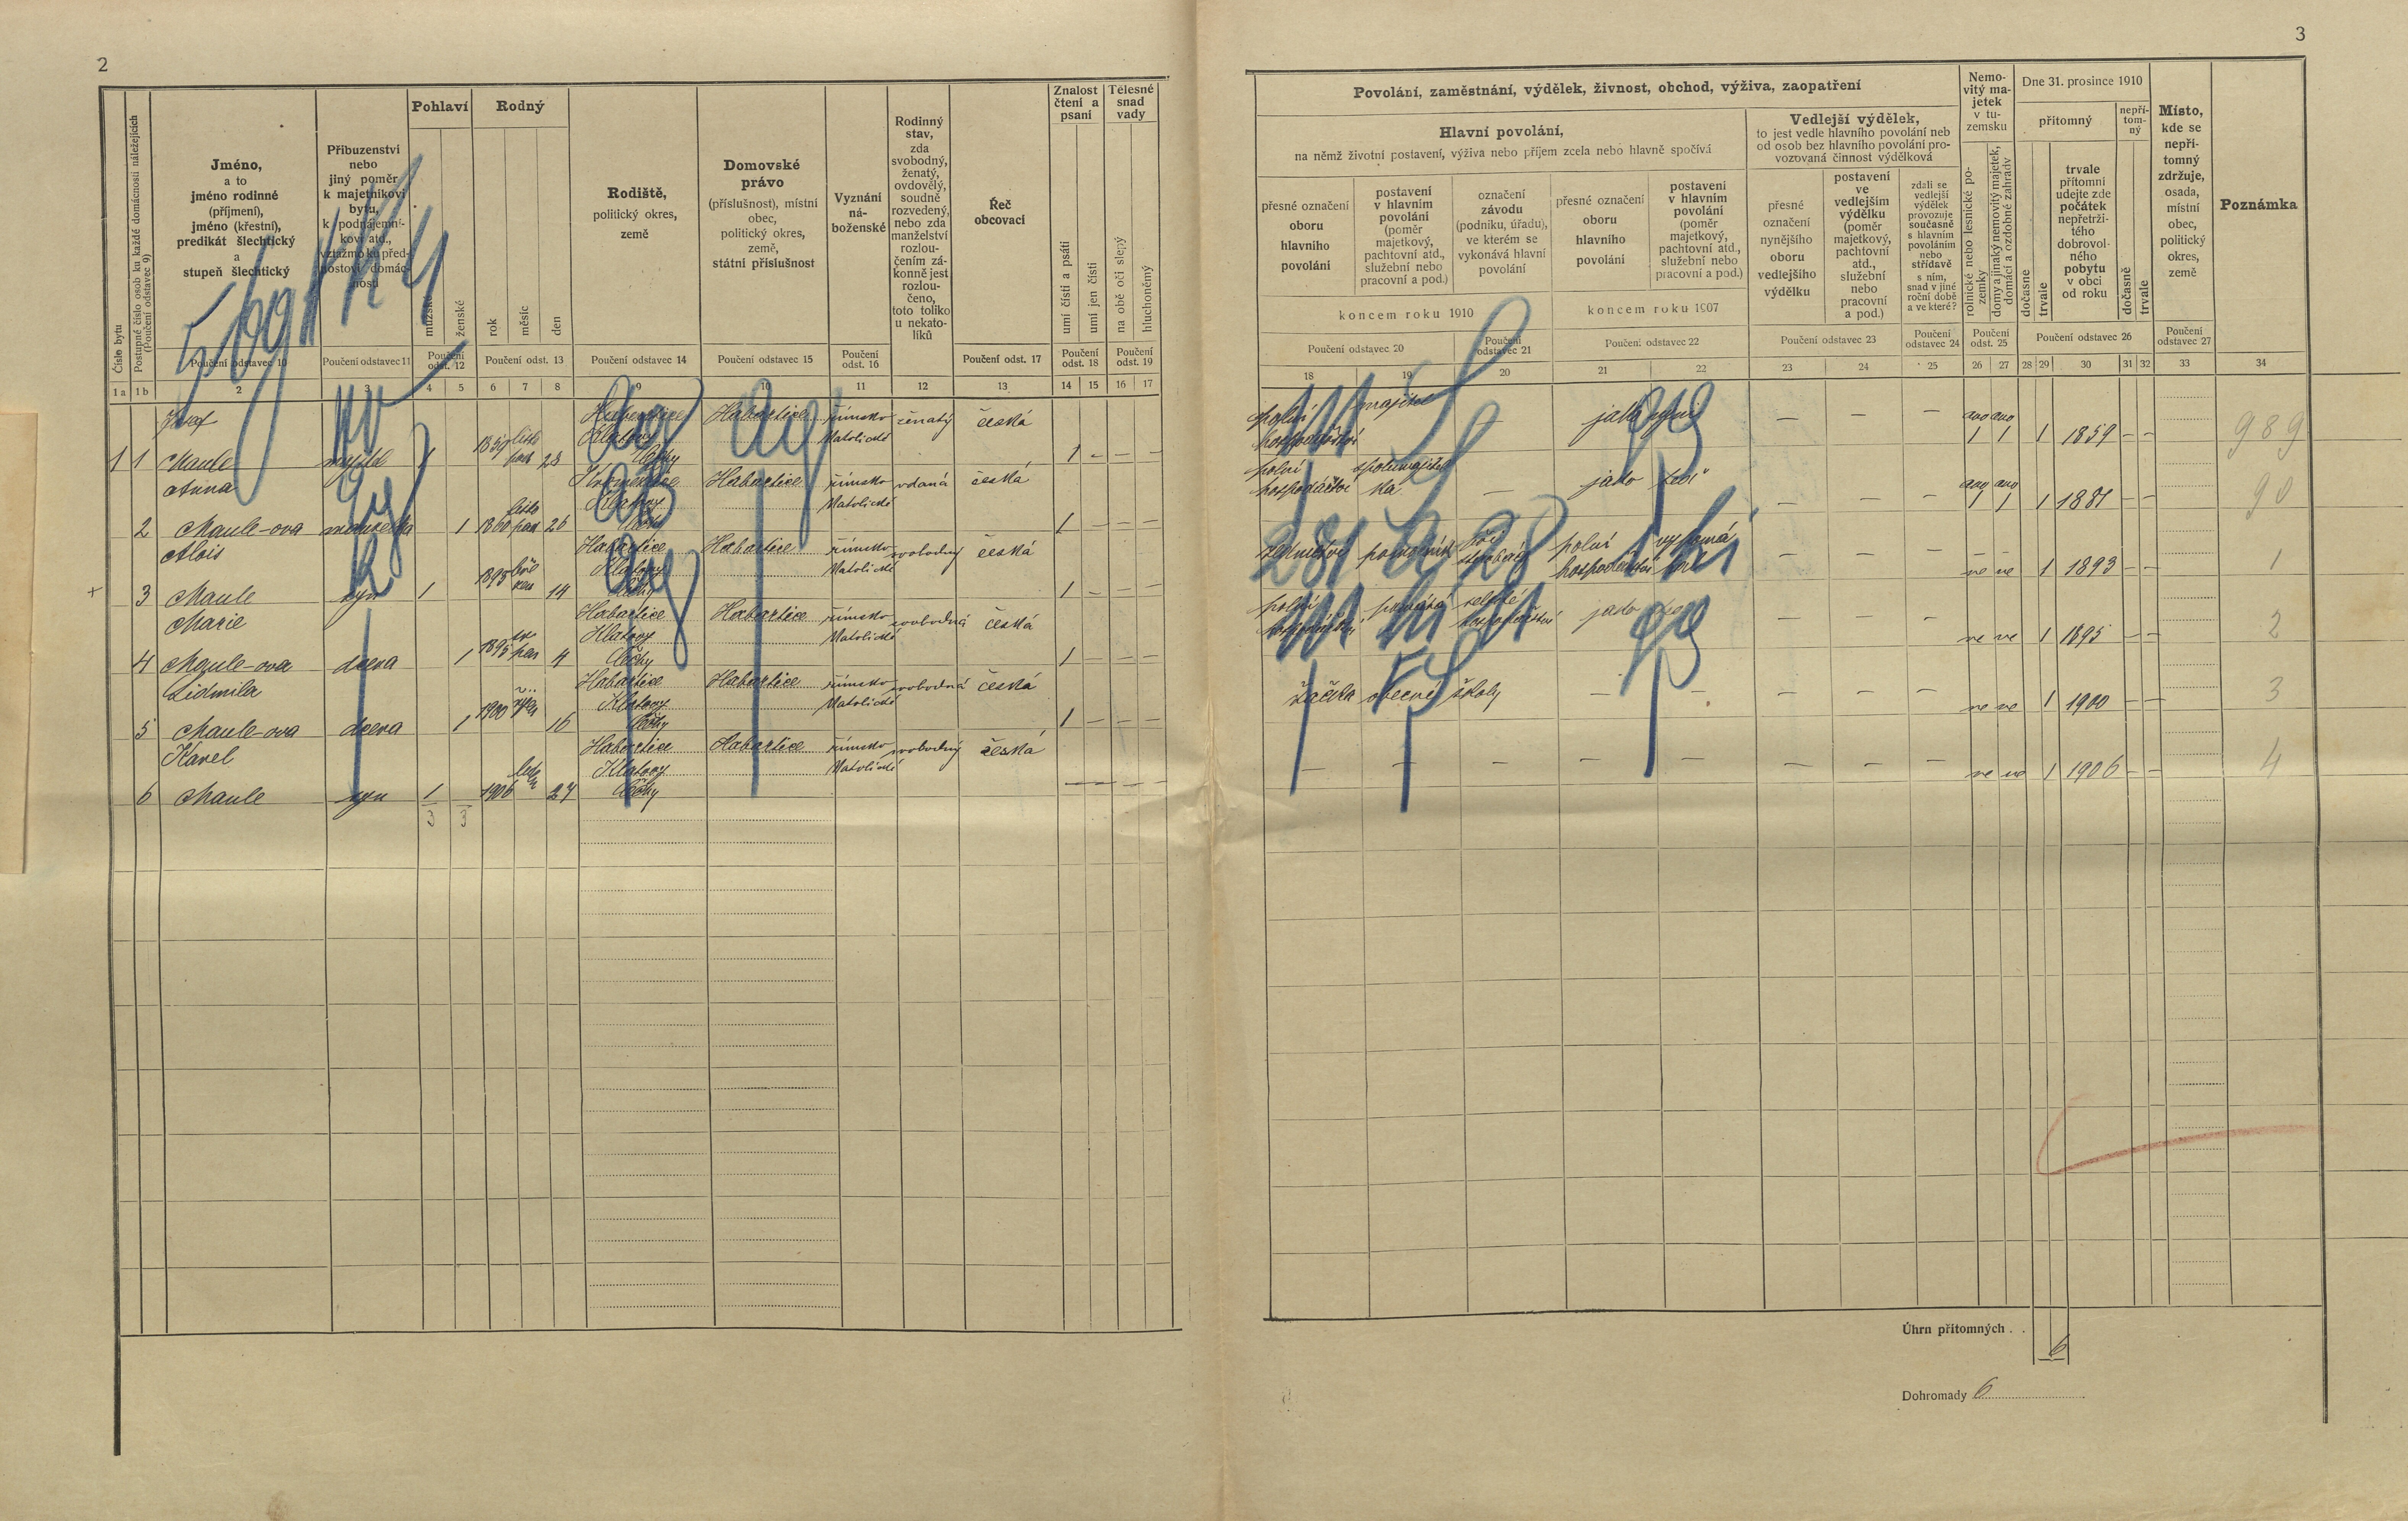 2
3
Číslo bytu
Postupné číslo osob ku každé domácnosti náležejících
(Poučení odstavec 9)
Jméno,
a to
jméno rodinné
(příjmení),
jméno (křestní),
predikát šlechtický
a
stupeň šlechtický
Poučení odstavec 10
Příbuzenství
nebo
jiný poměr
k majetníkovi
bytu,
k podnájemní-
kovi atd.,
vztažmo ku před-
nostovi domác-
nosti
Poučení odstavec 11
Pohlaví
mužské
ženské
Poučení
odst. 12
Rodný
rok
měsíc
den
Poučení odst. 13
Rodiště,
politický okres,
země
Poučení odstavec 14
Domovské
právo
(příslušnost), místní
obec,
politický okres,
země,
státní příslušnost
Poučení odstavec 15
Vyznání
ná-
boženské
Poučení
odst. 16
Rodinný
stav,
zda
svobodný,
ženatý,
ovdovělý,
soudně
rozvedený,
nebo zda
manželství
rozlou-
čením zá-
konně jest
rozlou-
čeno,
toto toliko
u nekato-
líků
Řeč
obcovací
Poučení odst. 17
Znalost
čtení a
psaní
umí čísti a psáti
umí jen čísti
Poučení
odst. 18
Tělesné
snad
vady
na obě oči slepý
hluchoněmý
Poučení
odst. 19
1a 1b 2 3 4 5 6 7 8 9 10 11 12 13 14 15 16 17
Povolání, zaměstnání, výdělek, živnost, obchod, výživa, zaopatření
Hlavní povolání,
na němž životní postavení, výživa nebo příjem zcela nebo hlavně spočívá
přesné označení
oboru
hlavního
povolání
postavení
v hlavním
povolání
(poměr
majetkový,
pachtovní atd.,
služební nebo
pracovní a pod.)
označení
závodu
(podniku, úřadu),
ve kterém se
vykonává hlavní
povolání
koncem roku 1910
Poučení odstavec 20
Poučení
odstavec 21
přesné označení
oboru
hlavního
povolání
postavení
v hlavním
povolání
(poměr
majetkový,
pachtovní atd.,
služební nebo
pracovní a pod.)
koncem roku 1907
Poučení odstavec 22
Vedlejší výdělek,
to jest vedle hlavního povolání neb
od osob bez hlavního povolání pro-
vozovaná činnost výdělková
přesné
označení
nynějšího
oboru
vedlejšího
výdělku
postavení
ve
vedlejším
výdělku
(poměr
majetkový,
pachtovní
atd.,
služební
nebo
pracovní
a pod.)
Poučení odstavec 23
zdali se
vedlejší
výdělek
provozuje
současně
s hlavním
povoláním
nebo
střídavě
s ním,
snad v jiné
roční době
a ve které?
Poučení
odstavec 24
Nemo-
vitý ma-
jetek
v tu-
zemsku
rolnické nebo lesnické po-
zemky
domy a jinaký nemovitý majetek,
domácí a ozdobné zahrady
Poučení
odst. 25
Dne 31. prosince 1910
přítomný
nepří-
tom-
ný
dočasně
trvale
trvale
přítomní
udejte zde
počátek
nepřetrži-
tého
dobrovol-
ného
pobytu
v obci
od roku
dočasně
trvale
Poučení odstavec 26
Místo,
kde se
nepří-
tomný
zdržuje,
osada,
místní
obec,
politický
okres,
země
Poučení
odstavec 27
Poznámka
18 19 20 21 22 23 24 25 26 27 28 29 30 31 32 33 34
Josef
1 1 Maule 1 1859 23
Habartice
Klatovy
Čechy
Habartice římsko katolické ženatý česká 1 – – –
polní hospodářství majitel – – – – ano ano 1 1 1 1859 – – 989
Anna
2 Maule-ova manželka 1 1860 26
Klatovy
Čechy
Habartice římsko katolické vdaná česká 1 – – –
polní hospodářství spolumajitelka – jako – – – ano ano 1 1 1 1881 – – 90
Alois
3 Maule syn 1 1893 14
Habartice
Klatovy
Čechy
Habartice římsko katolické svobodný česká 1 – – –
polní hospodářství – – – ne ne 1 1893 – – 1
Marie
4 Maule-ova dcera 1 1895 4
Habartice
Klatovy
Čechy
Habartice římsko katolické svobodná česká 1 – – –
jako – – – ne ne 1 1895 – – 2
Lidmila
5 Maule-ova dcera 1 1900 16
Habartice
Klatovy
Čechy
Habartice římsko katolické svobodná česká 1 – – –
žačka obecné školy – – – – – ne ne 1 1900 – – 3
Karel
6 Maule syn 1 1906 27
Habartice
Klatovy
Čechy
Habartice římsko katolické svobodný česká – – – –
– – – – – – – – ne ne 1 1906 – – 4
3 3
Úhrn přítomných . . 6
Dohromady 6